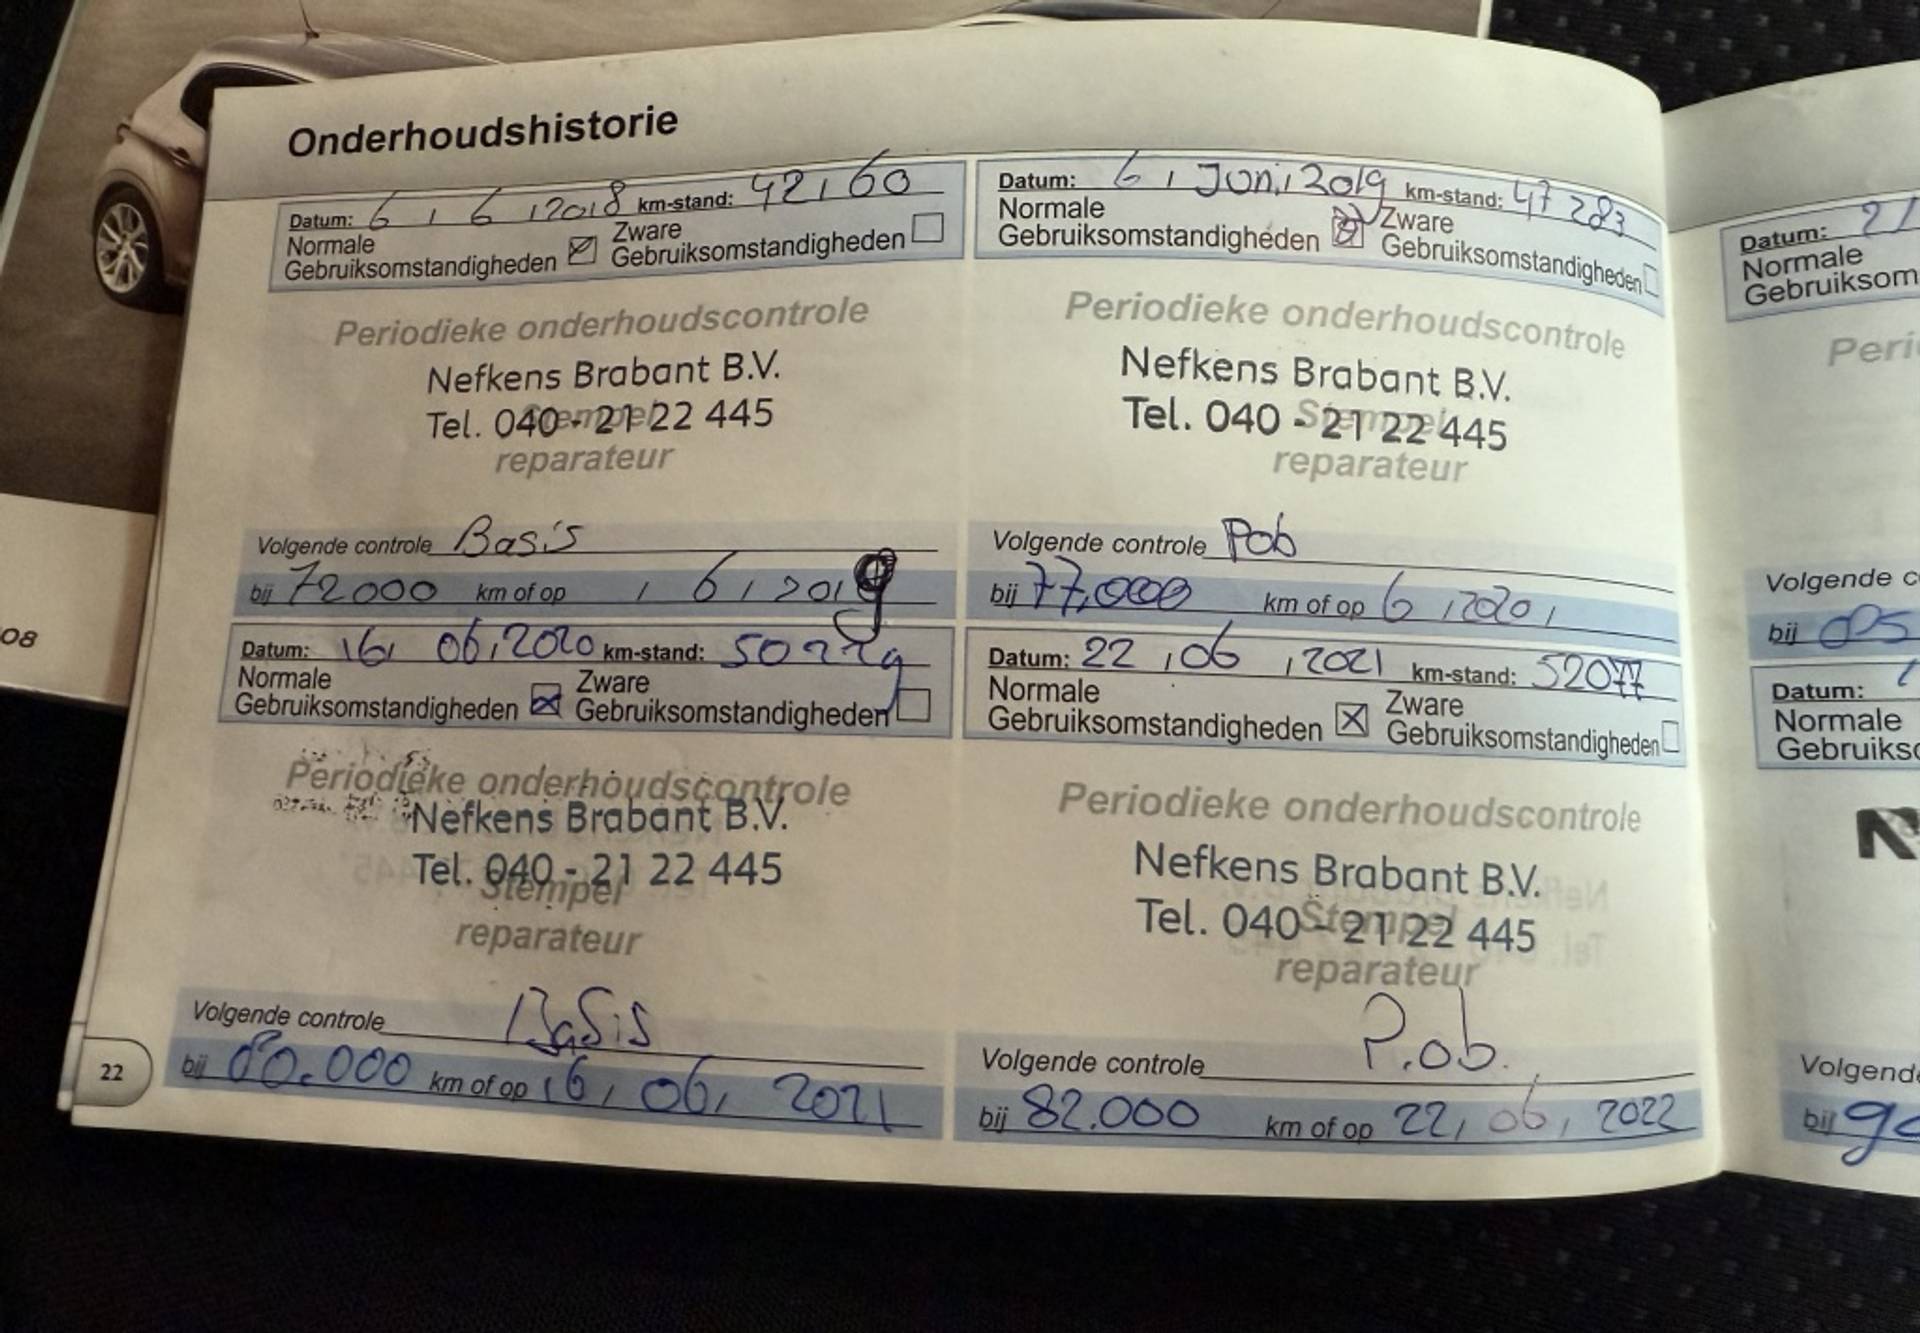 Onderhoudshistorie
Datum: 6 / 6 / 2018 km-stand: 42160
Normale Gebruiksomstandigheden Zware Gebruiksomstandigheden
Periodieke onderhoudscontrole
Nefkens Brabant B.V.
Tel. 040 - 21 22 445
Stempel
reparateur
Volgende controle Basis
bij 72000 km of op / 6 / 2019
Datum: 6 / Juni / 2019 km-stand: 47283
Normale Gebruiksomstandigheden Zware Gebruiksomstandigheden
Periodieke onderhoudscontrole
Nefkens Brabant B.V.
Tel. 040 - 21 22 445
Stempel
reparateur
Volgende controle Pob
bij 77.000 km of op 6 / 2020 /
Datum: 16 / 06 / 2020 km-stand: 50229
Normale Gebruiksomstandigheden Zware Gebruiksomstandigheden
Periodieke onderhoudscontrole
Nefkens Brabant B.V.
Tel. 040 - 21 22 445
Stempel
reparateur
Volgende controle Basis
bij 80.000 km of op 16 / 06 / 2021
Datum: 22 / 06 / 2021 km-stand: 52077
Normale Gebruiksomstandigheden Zware Gebruiksomstandigheden
Periodieke onderhoudscontrole
Nefkens Brabant B.V.
Tel. 040 - 21 22 445
Stempel
reparateur
Volgende controle P.ob.
bij 82.000 km of op 22 / 06 / 2022
22
08
Datum: 2
Normale
Gebruiksom
Peri
Volgende c
bij
Datum:
Normale
Gebruiks
Volgend
bij 9